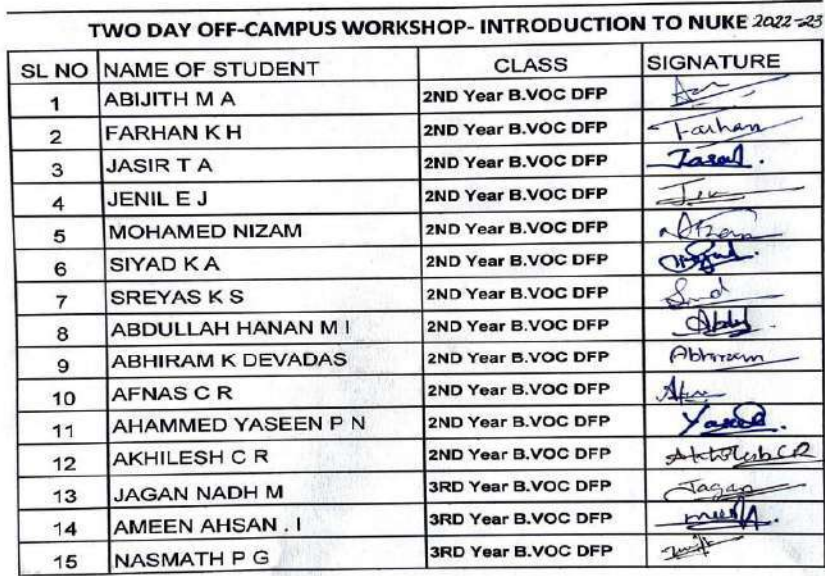 TWO DAY OFF-CAMPUS WORKSHOP- INTRODUCTION TO NUKE 2022-23
SL NO NAME OF STUDENT CLASS SIGNATURE
1 ABIJITH M A 2ND Year B.VOC DFP
2 FARHAN K H 2ND Year B.VOC DFP Farhan
3 JASIR T A 2ND Year B.VOC DFP
4 JENIL E J 2ND Year B.VOC DFP
5 MOHAMED NIZAM 2ND Year B.VOC DFP
6 SIYAD K A 2ND Year B.VOC DFP
7 SREYAS K S 2ND Year B.VOC DFP
8 ABDULLAH HANAN M I 2ND Year B.VOC DFP
9 ABHIRAM K DEVADAS 2ND Year B.VOC DFP Abhiram
10 AFNAS C R 2ND Year B.VOC DFP
11 AHAMMED YASEEN P N 2ND Year B.VOC DFP
12 AKHILESH C R 2ND Year B.VOC DFP Akhilesh CR
13 JAGAN NADH M 3RD Year B.VOC DFP Jagan
14 AMEEN AHSAN . I 3RD Year B.VOC DFP
15 NASMATH P G 3RD Year B.VOC DFP